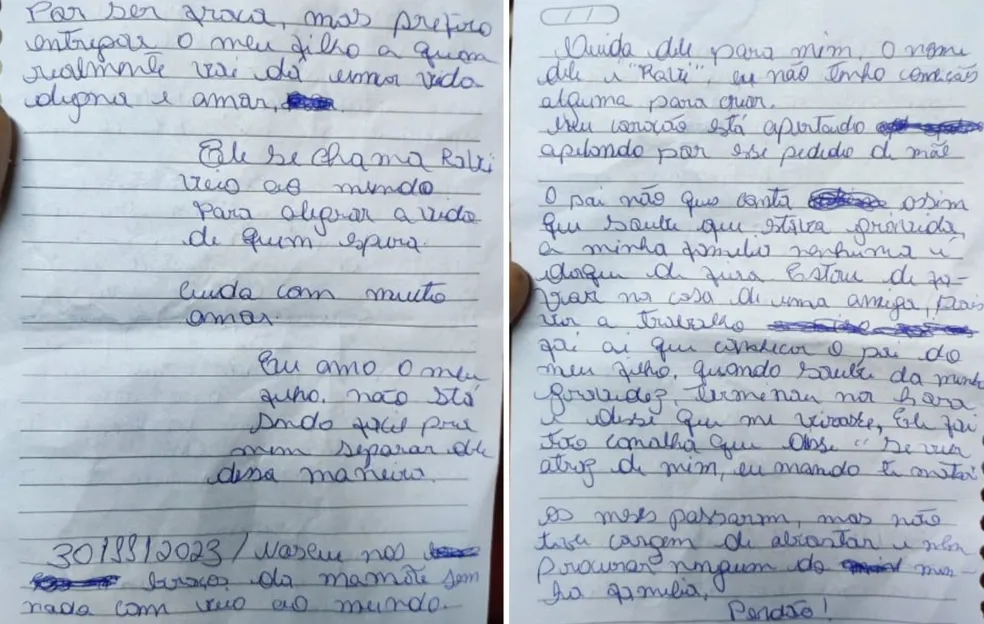 Por ser fraca, mas prefiro
entregar o meu filho a quem
realmente vai dá uma vida
digna e amor.
Ele se chama Ravi
veio ao mundo
para alegrar a vida
de quem espera.
Cuida com muito
amor.
Eu amo o meu
filho. não stá
sndo facil pra
mim separar dele
dessa maneira.
30/11/2023 / Nasceu nos
braços da mamãe sem
nada com veio ao mundo.
Cuida dele para mim, o nome
dele é "Ravi", eu não tenho condições
alguma para criar.
Meu coração está apertando
apelando por esse pedido de mãe
O pai não quis conta assim
que soube que estava gravida,
a minha familia nenhuma é
daqui de Estou de fa-
vor na casa de uma amiga,
vir a trabalho
foi ai que conhecer o pai do
meu filho, quando soube da minha
gravidez, terminou na hora
e disse que me virasse, Ele foi
tão canalha que disse "Se vier
atrez de mim, eu mando te matar
os meses passarm, mas não
tive corgem de abortar e nem
procurar ninguem da mi-
ha familia,
Perdão!